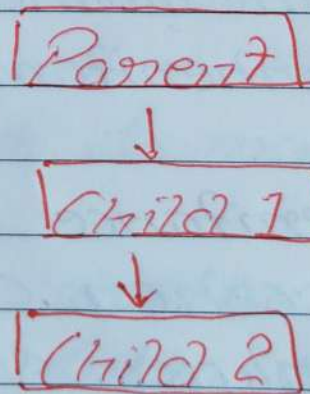 Parent
Child 1
Child 2